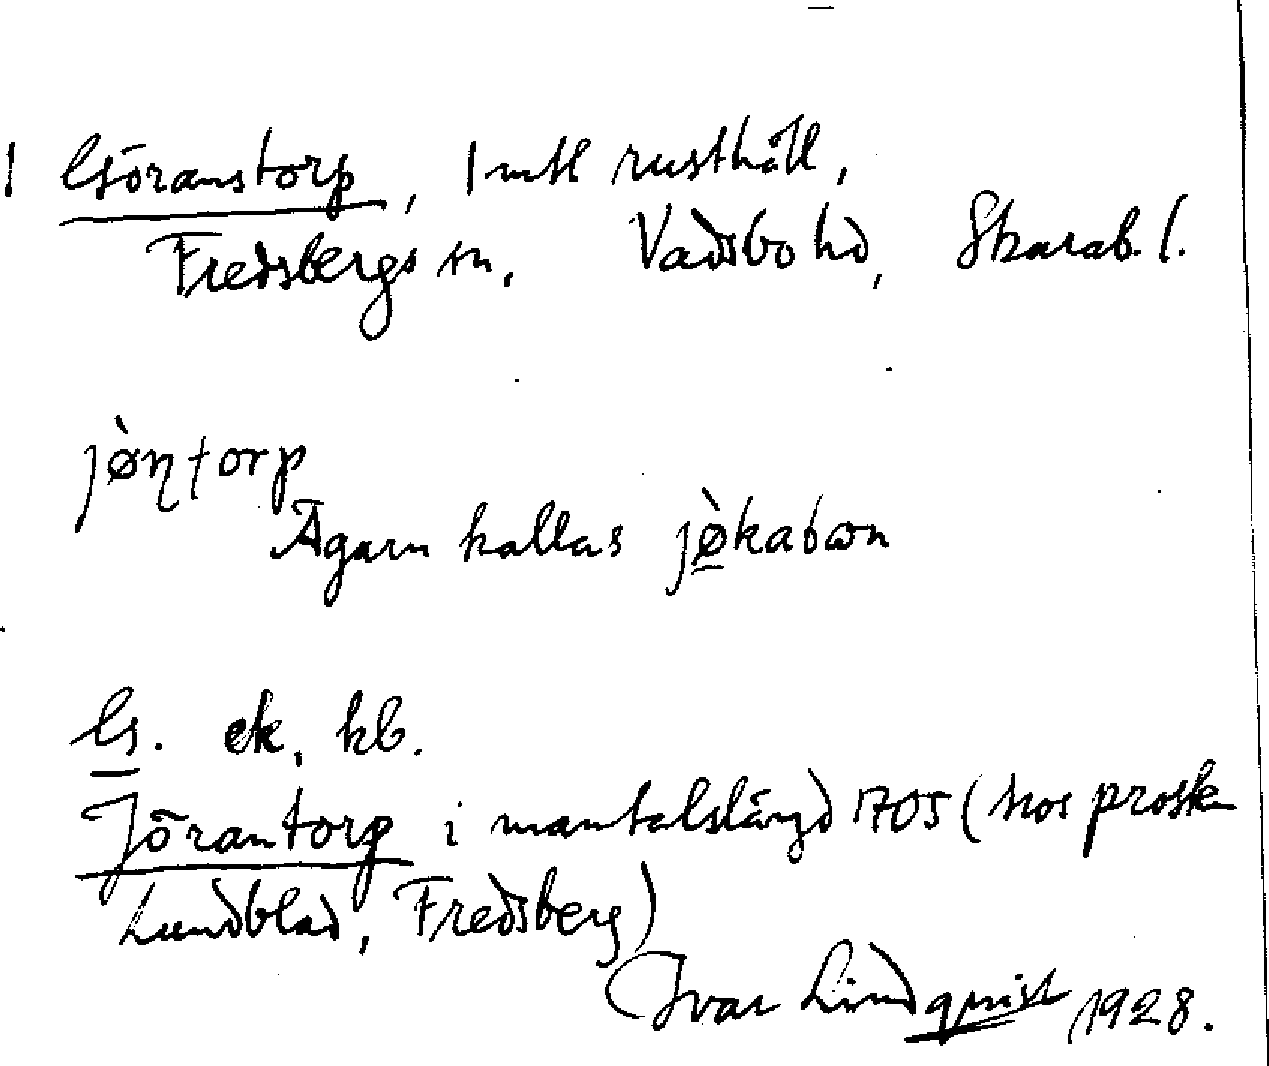 1 Göranstorp, 1 mtl rusthåll,
Fredsbergs sn, Vadsbo hd, Skarab. l.
jø̀ņtorp
Ägarn kallas jø̀kabɷn
G. ek, kb.
Jörantorp i mantalslängd 1705 (hos prosten
Lundblad, Fredsberg)
Ivar Lindquist 1928.